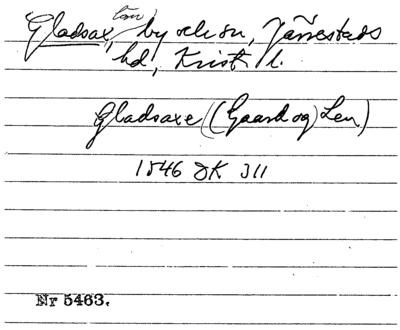 Gladsax, tom by och sn, Järrestads
hd, Krist l.
Gladsaxe ((Gaard og) Len)
1546 DK 311
Nr 5463.